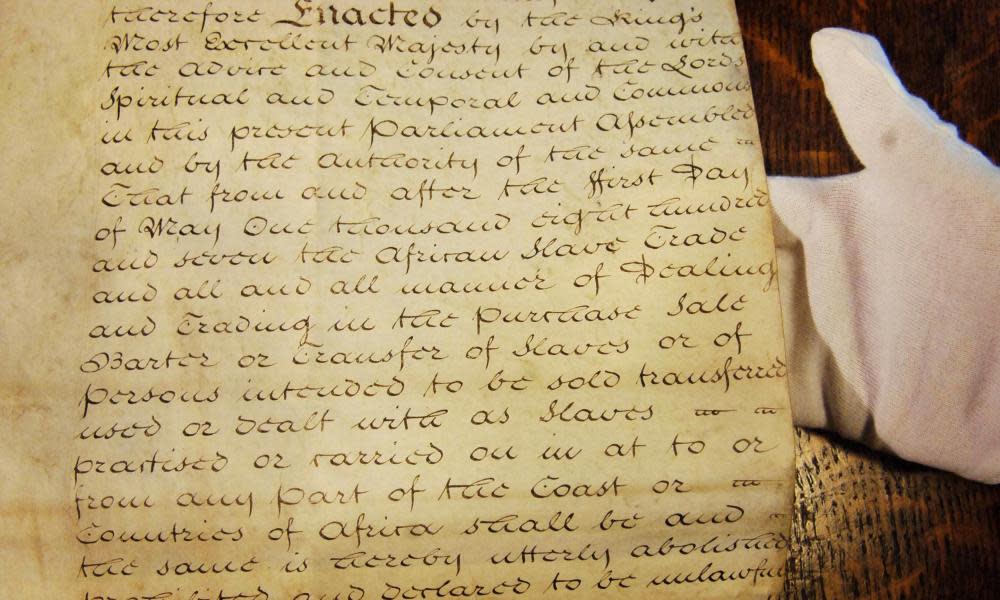 therefore Enacted by the King's
Most Excellent Majesty by and with
the Advice and Consent of the Lords
Spiritual and Temporal and Commons
in this present Parliament Assembled
and by the Authority of the same
That from and after the ffirst Day
of May One thousand eight hundred
and seven the African Slave Trade
and all and all manner of Dealing
and Trading in the Purchase Sale
Barter or Transfer of Slaves or of
persons intended to be sold transferred
used or dealt with as Slaves
practised or carried on in at to or
from any part of the Coast or
Countries of Africa shall be and
the same is hereby utterly abolished
prohibited and declared to be unlawful